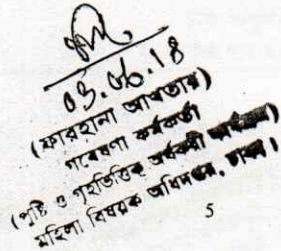 ০3.০৬.১৪
(ফারহানা আখতার)
গবেষণা কর্মকর্তা
(পুষ্টি ও গৃহভিত্তিক অর্থকরী
মহিলা বিষয়ক অধিদপ্তর, ঢাকা।
5